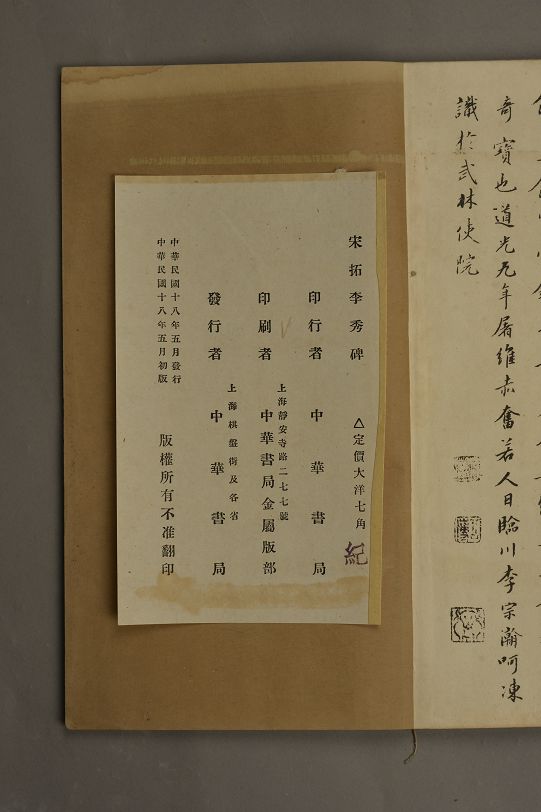 奇寶也道光元年屠維赤奮若人日臨川李宗瀚呵凍
識於武林使院
宋拓李秀碑
△定價大洋七角
紀
印行者 中華書局
上海靜安寺路二七七號
印刷者 中華書局金屬版部
上海棋盤街及各省
發行者 中華書局
中華民國十八年五月發行
中華民國十八年五月初版
版權所有不准翻印